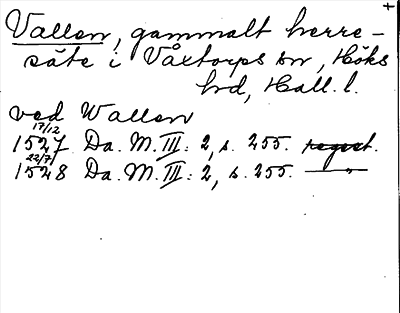 +
Vallen, gammalt herre-
säte i Våxtorps sn, Höks
hd, Hall. l.
ved Wallen
17/12
1527 Da. M. III: 2, s. 255. regest.
22/7
1528 Da. M. III: 2, s. 255. —"—